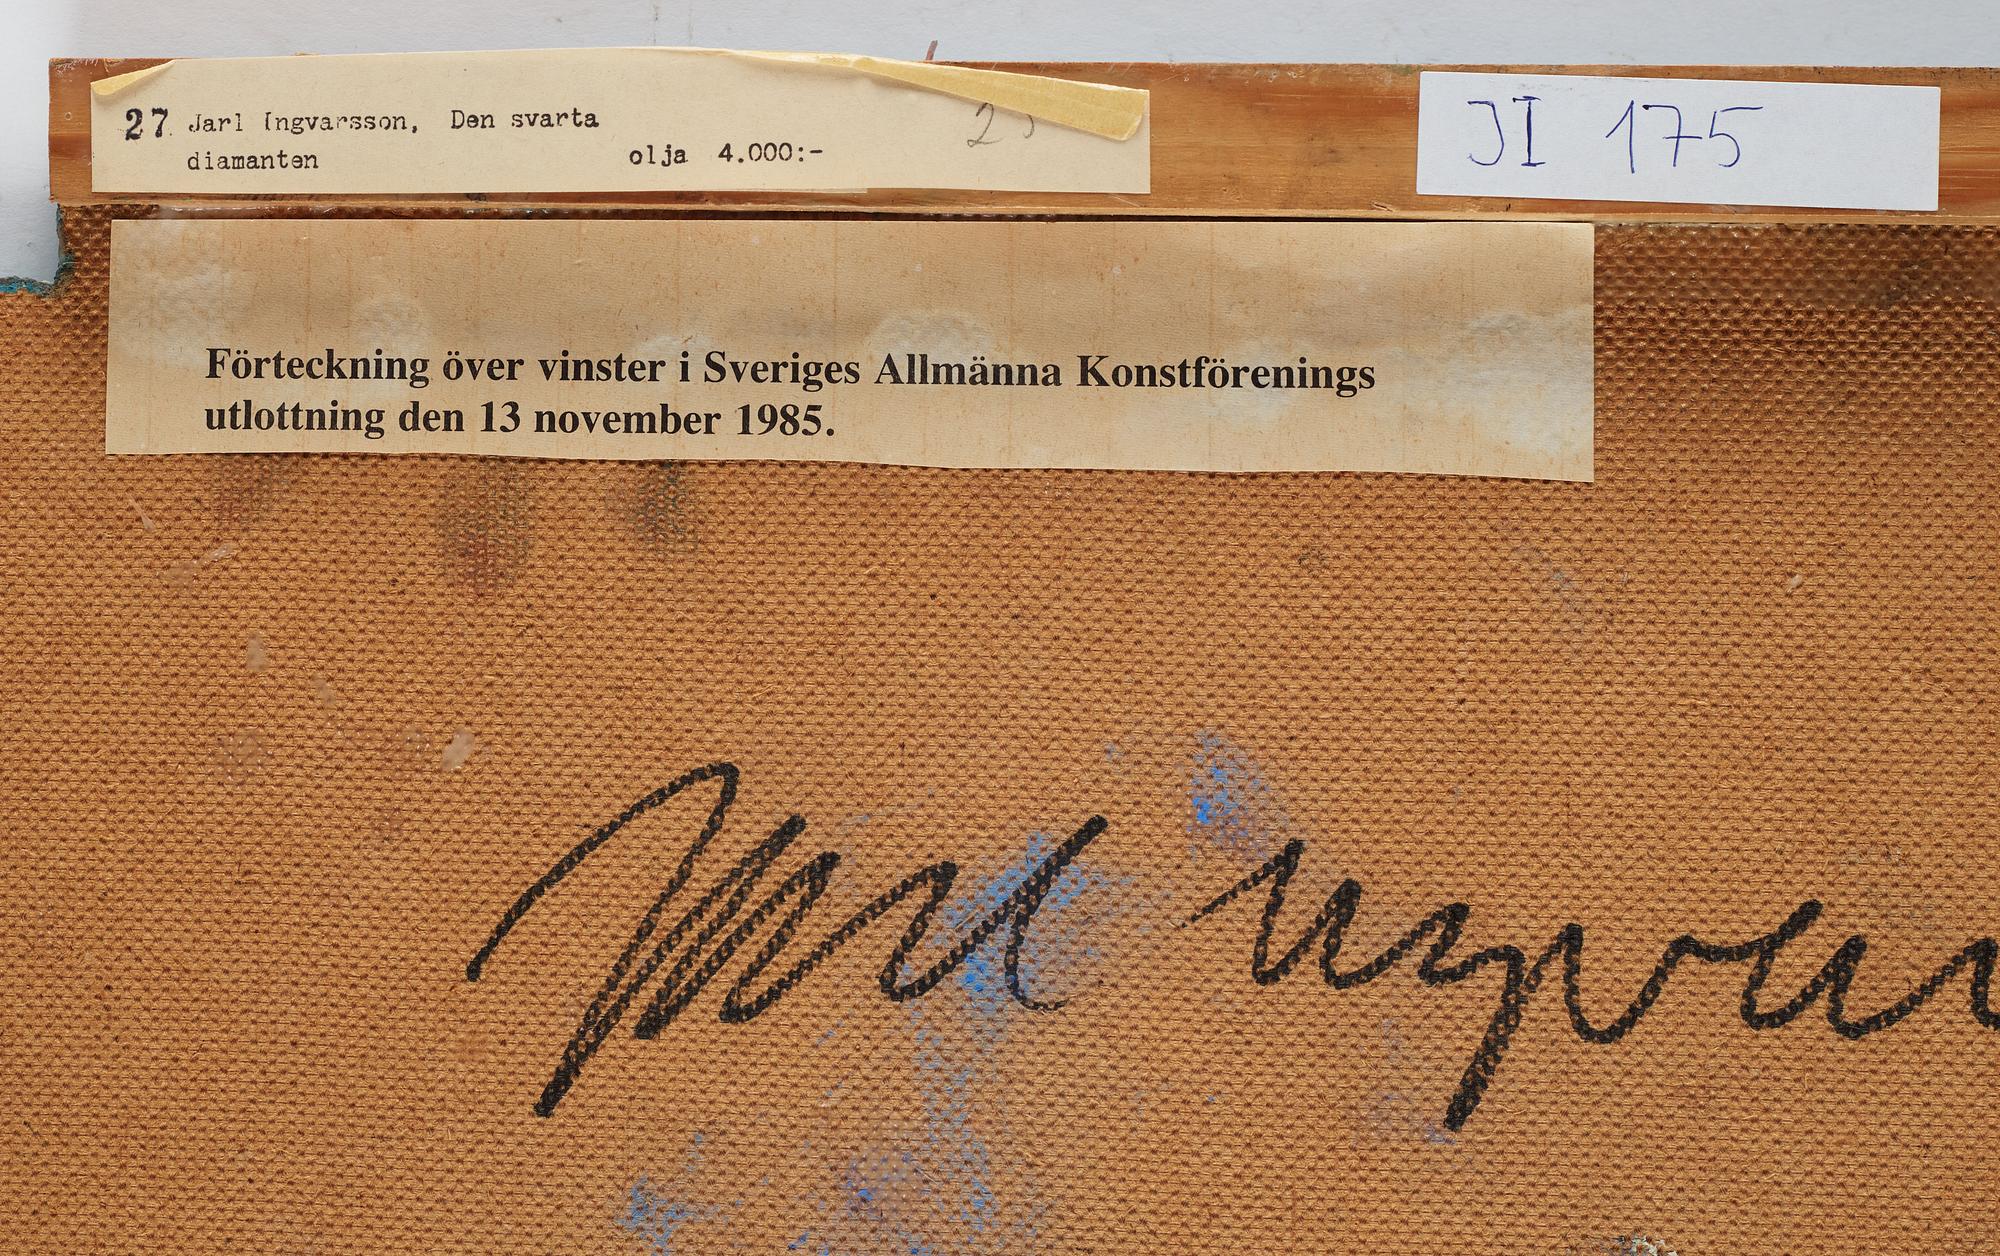 27 Jarl Ingvarsson, Den svarta
diamanten olja 4.000:-
JI 175
Förteckning över vinster i Sveriges Allmänna Konstförenings
utlottning den 13 november 1985.